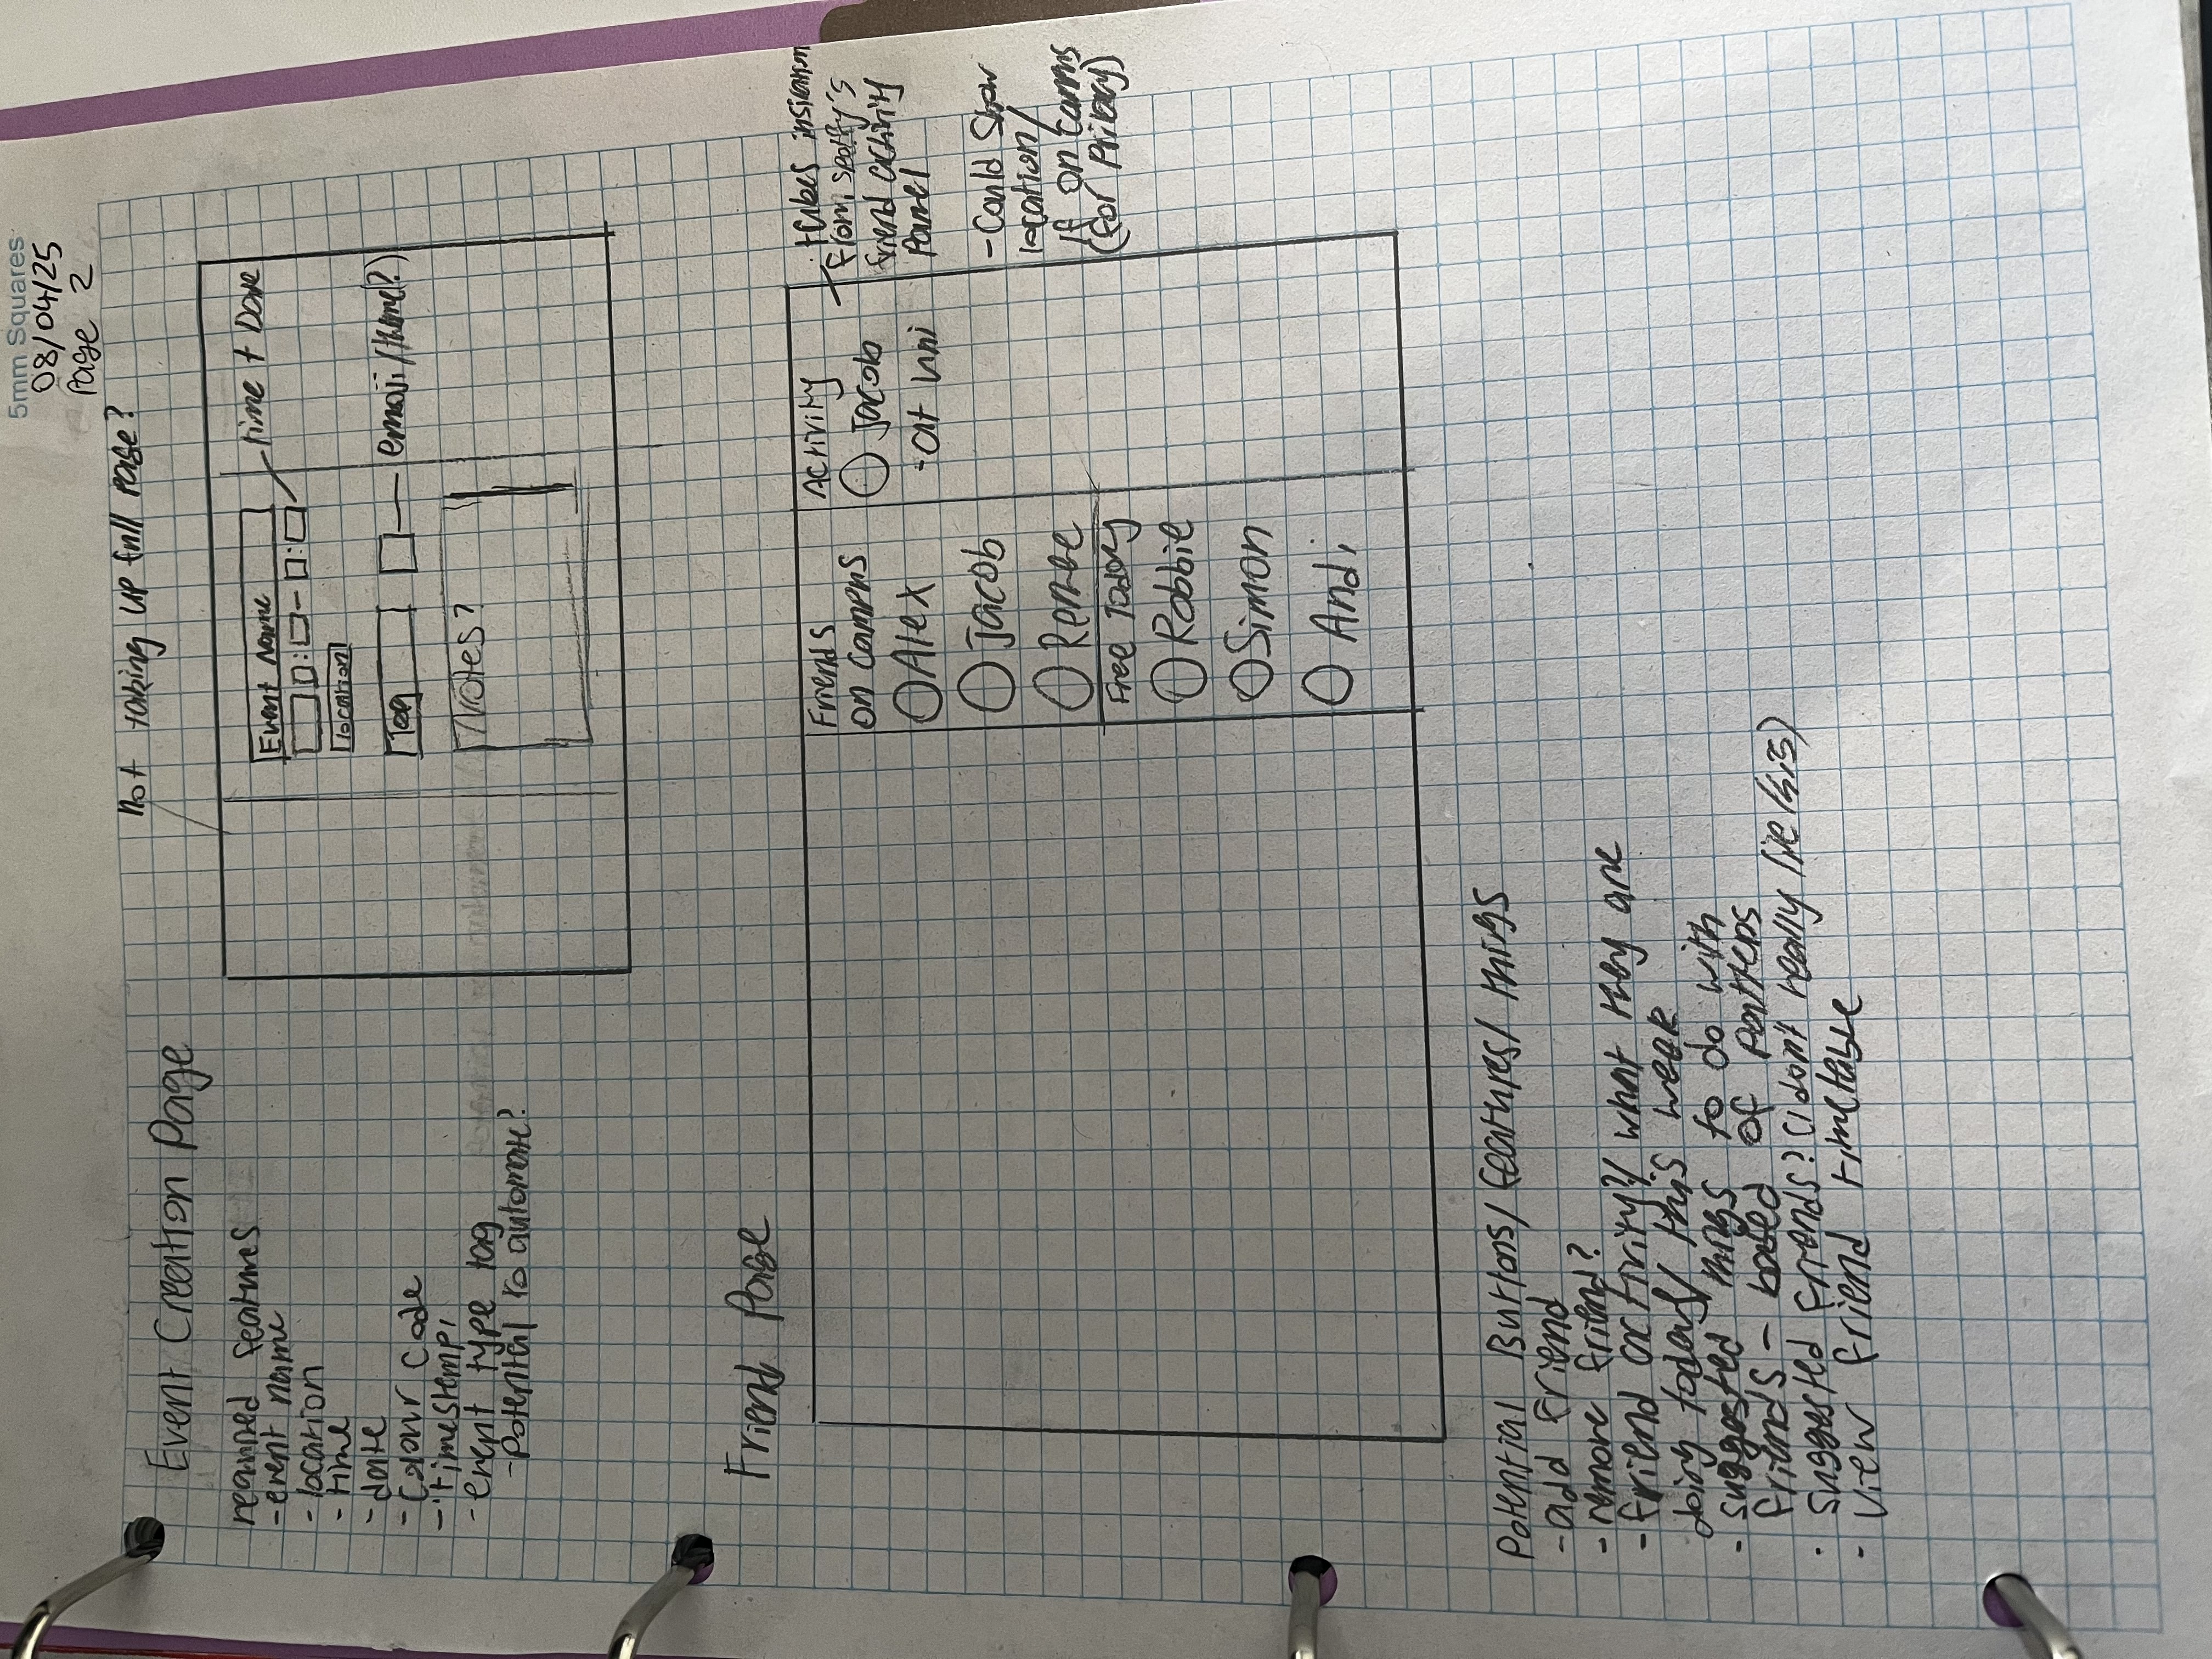 5mm Squares
08/04/25
Page 2
not taking up full page?
Event Creation Page
required features
- event name
- location
- time
- date
- colour code
- timestamp
- event type tag
- Potential to automate?
Event Name
time + Date
: - :
location
Tag
emoji/theme(?)
Notes?
Friend Page
Friends
on campus
Alex
Jacob
Renee
Free Today
Robbie
Simon
Andi
Activity
Jacob
- at uni
takes
from Spotify's
friend activity
Panel
- Could show
location/
if on campus
(for privacy)
Potential Buttons/features/things
- add friend
- remove friend?
- friend activity?/ what they are
doing today/ this week
- suggested things to do with
friends - based of patterns
- suggested friends? (I don't really like this)
- view friend timetable